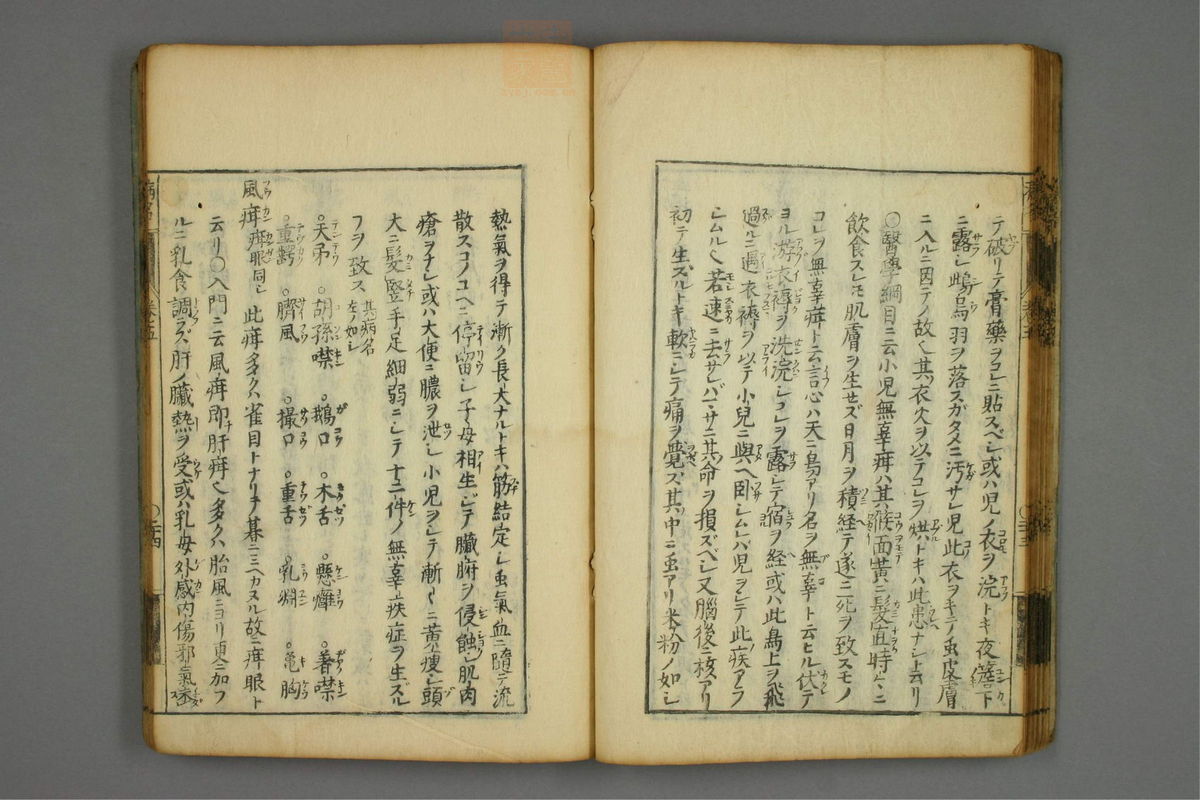 テ破リテ膏藥ヲコレニ貼スベシ或ハ児ノ衣ヲ浣トキ夜簷下
ニ露シ鴟烏羽ヲ落スガタメニ汚サレ児此衣ヲキテノ虫皮膚
ニ入ルニ因テノ故ヘ其衣火ヲ以テコレヲ烘トキハ此患ナシト云リ
〇醫學綱目ニ云小児無辜疳ハ其候面黄ニ髪直時々ニ
飲食スレモ肌膚ヲ生セズ日月ヲ積経テ遂ニ死ヲ致スモノ
コレヲ無辜疳ト云言心ハ天ニ鳥アリ名ヲ無辜ト云ヒル伏テ
ヨル游衣褥ヲ洗浣シコレヲ露シテ宿ヲ経或ハ此鳥上ヲ飛
過ルニ過衣褥ヲ以テ小兒ニ與ヘ卧シムレバ児ヲシテ此疾アラ
シムルヘ若速ニ去サレバマサニ其命ヲ損ズベシ又腦後ニ核アリ
初テ生ズルトキ軟ニシテ痛ヲ覺ズ其中ニ虫アリ米粉ノ如シ
熱氣ヲ得テ漸ク長大ナルトキハ筋結定シ虫氣血ニ隨テ流
散スコノユヘニ停留シ子母相生ジテ臓腑ヲ侵蝕シ肌肉
瘡ヲナシ或ハ大便ニ膿ヲ泄シ小児ヲシテ漸々ニ黄痩シ頭
大ニ髪竪手足細弱ニシテ十二件ノ無辜疾症ヲ生ズル
フヲ致ス 其病名左ノ如シ
〇天弔 〇胡孫噤 〇鵝口 〇木舌 〇懸癰 〇着噤
〇重齶 〇臍風 〇撮口 〇重舌 〇乳癇 〇亀胸
風疳 疳眼同シ 此疳多クハ雀目トナリ子暮ニ三ヘカスル故ニ疳眼ト
云リ〇入門ニ云風疳即肝疳ヘ多クハ胎風ニヨリ更ニ加フ
ルニ乳食調ラズ肝ノ臓熱ヲ受或ハ乳母外感内傷邪氣
巻五
〇二十四